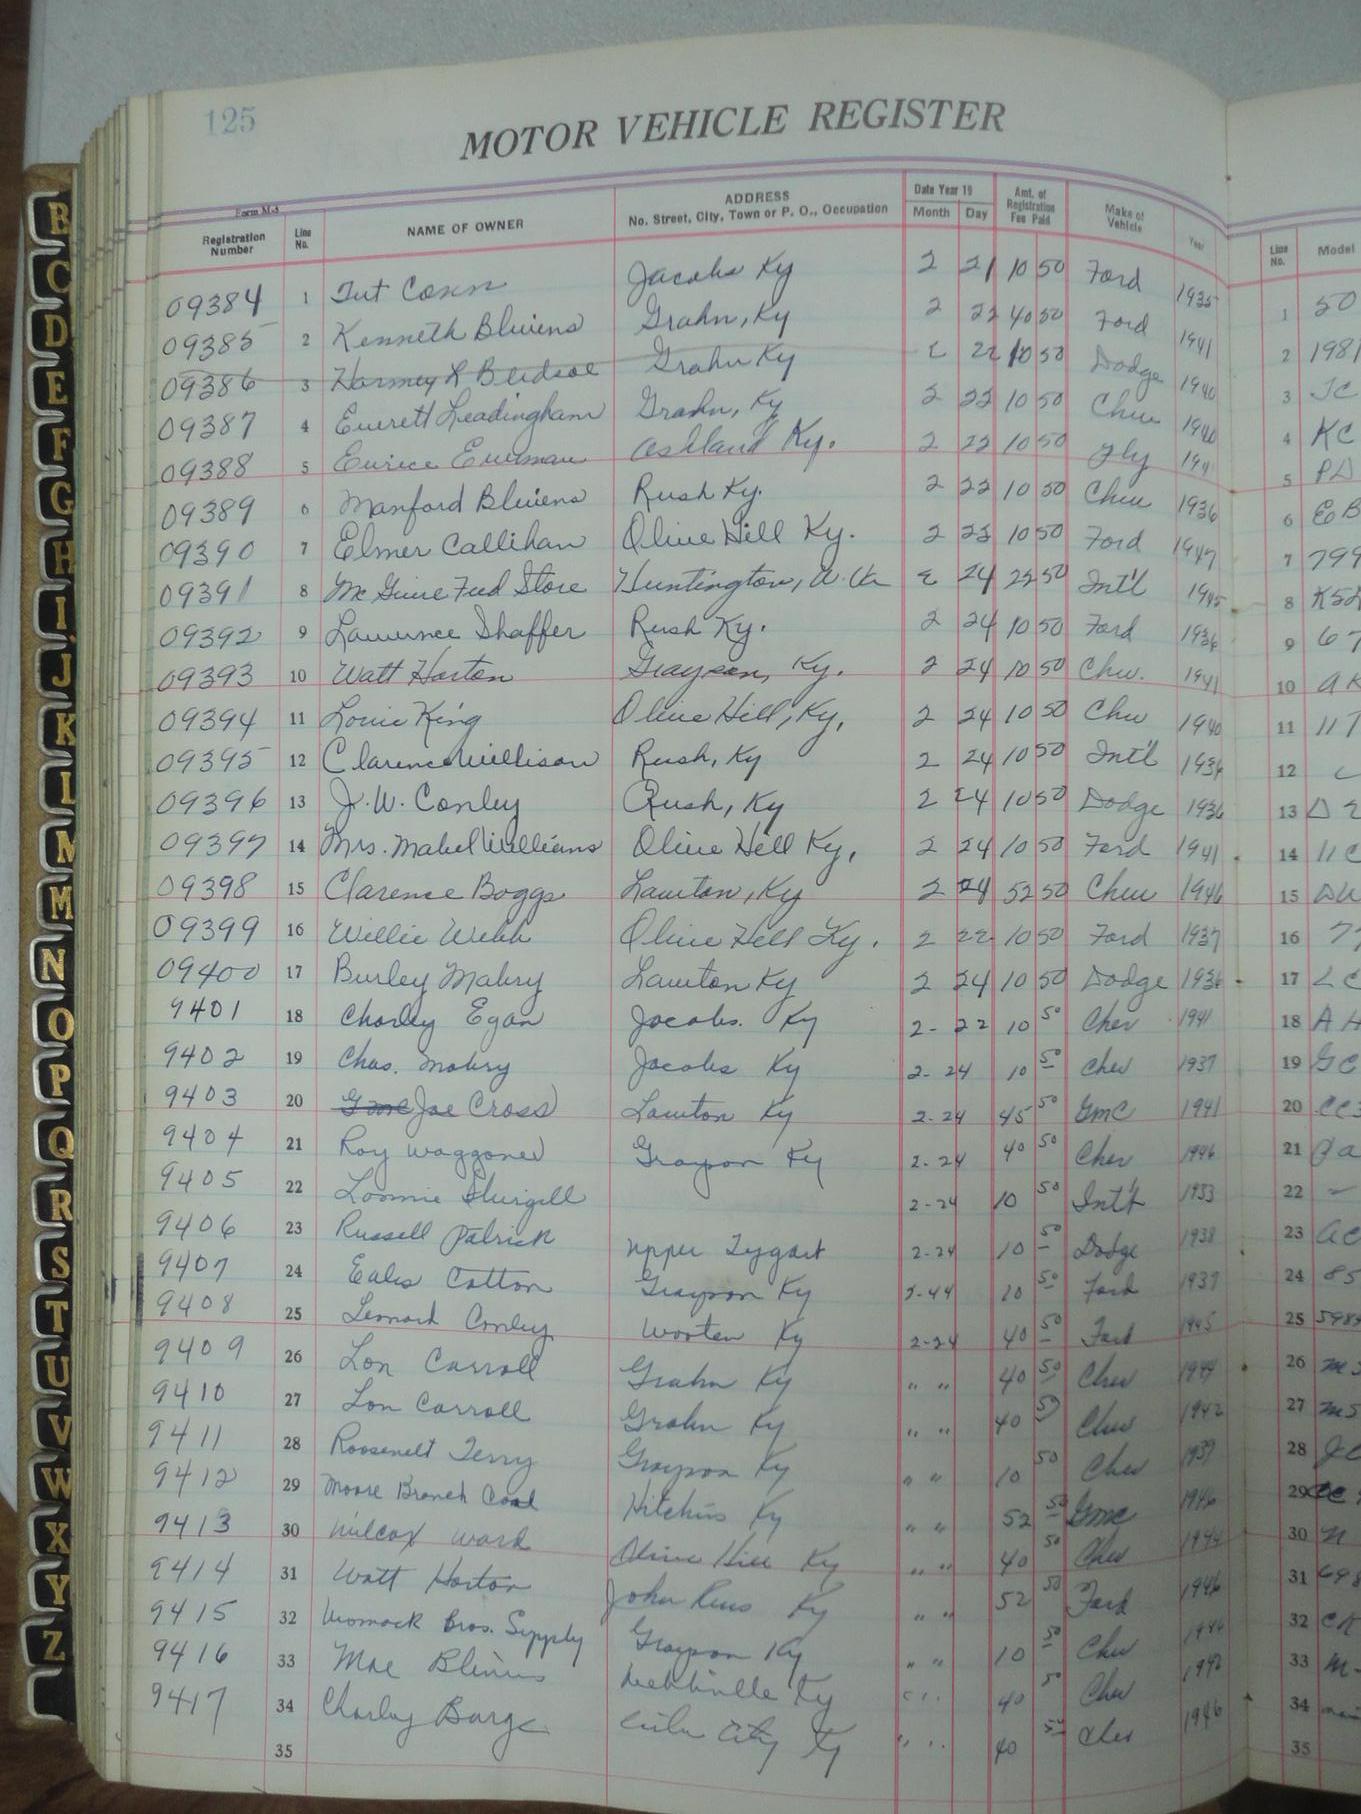 125
MOTOR VEHICLE REGISTER
Form M-5
Registration Number Line No. NAME OF OWNER ADDRESS No. Street, City, Town or P. O., Occupation Date Year 19 Month Day Amt. of Registration Fee Paid Make of Vehicle Year Line No. Model
09384 1 Tut Conn Jacobs Ky 2 21 10 50 Ford 1935 1 50
09385 2 Kenneth Blevins Grahn, Ky 2 22 40 50 Ford 1941 2 1981
09386 3 Grahn Ky 2 22 10 50 Dodge 1940 3 JC
09387 4 Everett Leadingham Grahn, Ky 2 22 10 50 Chev 1940 4 KC
09388 5 Eurice Ashland Ky. 2 22 10 50 Ply 194 5 PD
09389 6 Manford Blevins Rush Ky. 2 22 10 50 Chev 1936 6 EB
09390 7 Elmer Callihan Olive Hill Ky. 2 23 10 50 Ford 1947 7 799
09391 8 McGuire Feed Store Huntington, W. Va 2 24 22 50 Int'l 1945 8 K5
09392 9 Lawrence Shaffer Rush Ky. 2 24 10 50 Ford 1936 9 67
09393 10 Watt Horton Grayson, Ky. 2 24 10 50 Chev. 1941 10 AK
09394 11 Louie King Olive Hill, Ky. 2 24 10 50 Chev 1940 11 117
09395 12 Clarence Willison Rush, Ky 2 24 10 50 Int'l 1936 12
09396 13 J. W. Conley Rush, Ky 2 24 10 50 Dodge 1936 13 D2
09397 14 Mrs. Mabel Williams Olive Hill Ky. 2 24 10 50 Ford 1941 14 11C
09398 15 Clarence Boggs Lawton, Ky 2 24 52 50 Chev 1946 15 DW
09399 16 Willie Webb Olive Hill Ky. 2 22 10 50 Ford 1937 16 77
09400 17 Burley Mabry Lawton Ky 2 24 10 50 Dodge 1936 17 LC
9401 18 Charley Egan Jacobs. Ky 2-22 10 50 Chev 1941 18 AH
9402 19 Chas. Mabry Jacobs Ky 2-24 10 50 Chev 1937 19 GC
9403 20 Joe Cross Lawton Ky 2-24 45 50 GMC 1941 20 CC
9404 21 Roy Waggoner Grayson Ky 2-24 40 50 Chev 1946 21
9405 22 Lonnie Sturgill 2-24 10 50 Int'l 1933 22
9406 23 Russell Patrick Upper Tygart 2-24 10 50 Dodge 1938 23 AC
9407 24 Cotton Grayson Ky 2-44 10 50 Ford 1937 24 85
9408 25 Lenard Conley Wooten Ky 2-24 40 50 Ford 1945 25 598
9409 26 Lon Carroll Grahn Ky " " 40 50 Chev 1944 26 MS
9410 27 Lon Carroll Grahn Ky " " 40 50 Chev 1942 27 MS
9411 28 Roosevelt Terry Grayson Ky " " 10 50 Chev 1937 28
9412 29 Moore Branch Coal Hitchins Ky " " 52 50 GMC 1946 29
9413 30 Wilcox Ward Olive Hill Ky " " 40 50 Chev 1944 30
9414 31 Watt Horton John Runs Ky " " 52 50 Ford 1946 31 698
9415 32 Womack Bros. Supply Grayson Ky " " 10 50 Chev 1946 32 CK
9416 33 Mae Blevins Webbville Ky " " 40 50 Chev 1942 33 M-
9417 34 Charley Barge City Ky " " 40 50 Chev 1946 34
35 35
B
C
D
E
F
G
H
I
J
K
L
M
M
N
O
P
Q
R
S
T
U
V
W
X
Y
Z